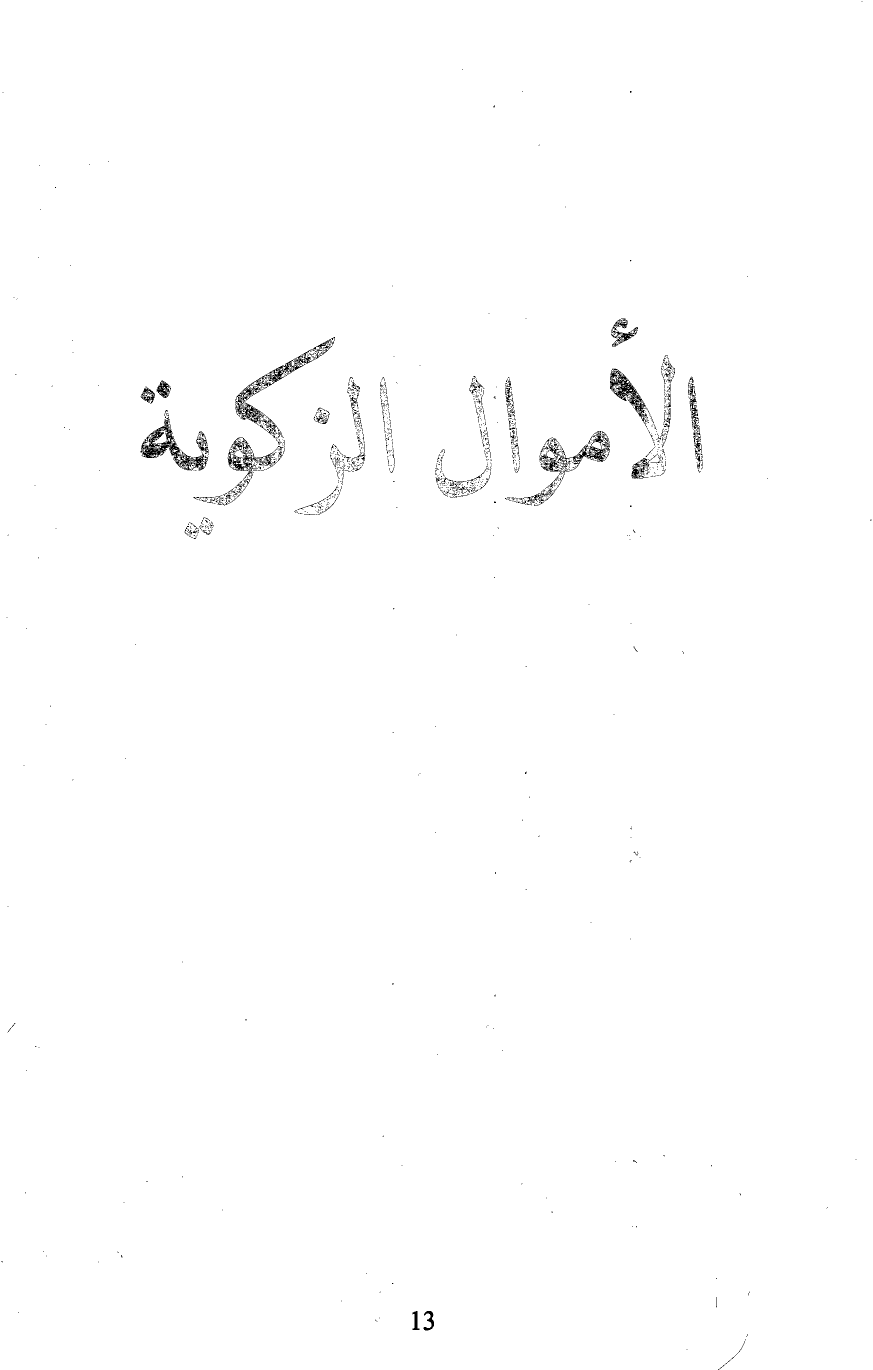 الأموال الزكوية
13